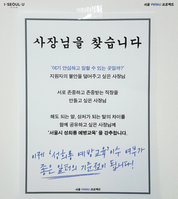 I·SEOUL·U
서울 위드유 프로젝트
사장님을 찾습니다
'여기 안심하고 일할 수 있는 곳일까?'
지원자의 불안을 덜어주고 싶은 사장님
서로 존중하고 존중받는 직장을
만들고 싶은 사장님
해도 되는 말, 상처가 되는 말의 차이를
함께 공유하고 싶은 사장님께
「서울시 성희롱 예방교육」을 강추합니다.
이제 '성희롱 예방교육' 이수 여부가
좋은 일터의 기준점이 됩니다!
서울 위드유 프로젝트